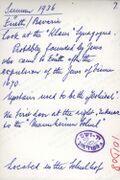 Summer 1936
7
Fürth, Bavaria
Look at the "Klaus" Synagogue.
Probably founded by Jews
who came to Fürth after the
expulsion of the Jews of Vienna
1670.
Upstairs used to be the
The first door at the right, indoor
is the "Mannheimer Schul"
Located in the Schulhof